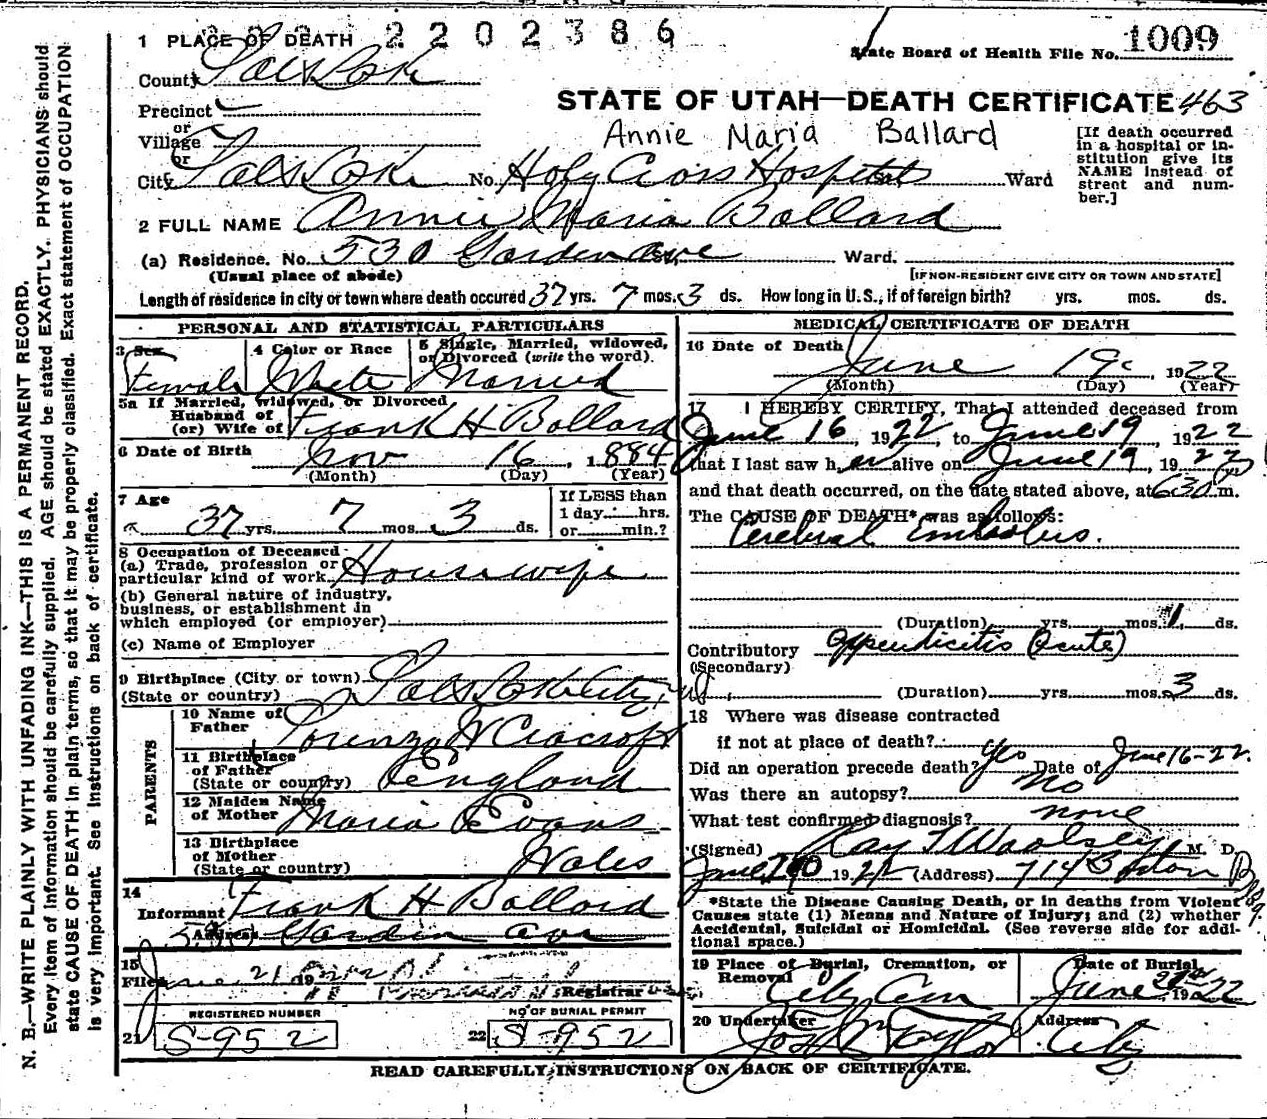 2202386
1 PLACE OF DEATH
State Board of Health File No. 1009
County Salt Lake
Precinct
or
Village
or
City Salt Lake No. Holy Cross Hospital Ward
STATE OF UTAH—DEATH CERTIFICATE 463
Annie Maria Ballard
[If death occurred in a hospital or in-
stitution give its
NAME instead of
street and num-
ber.]
2 FULL NAME Annie Maria Ballard
(a) Residence. No. 530 Garden Ave Ward.
(Usual place of abode) [IF NON-RESIDENT GIVE CITY OR TOWN AND STATE]
Length of residence in city or town where death occured 37 yrs. 7 mos. 3 ds. How long in U. S., if of foreign birth? yrs. mos. ds.
PERSONAL AND STATISTICAL PARTICULARS
3 Sex 4 Color or Race 5 Single, Married, widowed,
or Divorced (write the word).
Female White Married
5a If Married, widowed, or Divorced
Husband of
(or) Wife of Frank H Ballard
6 Date of Birth Nov 16, 1884
(Month) (Day) (Year)
7 Age 37 yrs. 7 mos. 3 ds.
If LESS than
1 day hrs.
or min.?
8 Occupation of Deceased
(a) Trade, profession or
particular kind of work Housewife
(b) General nature of industry,
business, or establishment in
which employed (or employer)
(c) Name of Employer
9 Birthplace (City or town) Salt Lake City, Ut
(State or country)
PARENTS
10 Name of
Father Lorenzo W Cracroft
11 Birthplace
of Father
(State or country) England
12 Maiden Name
of Mother Maria Evans
13 Birthplace
of Mother
(State or country) Wales
14
Informant Frank H Ballard
Address 530 Garden Ave
15
Filed June 21 19
Registrar
REGISTERED NUMBER
21 S-952
NO OF BURIAL PERMIT
22 S-952
MEDICAL CERTIFICATE OF DEATH
16 Date of Death June 19 1922
(Month) (Day) (Year)
17 I HEREBY CERTIFY, That I attended deceased from
June 16, 1922, to June 19, 1922
that I last saw her alive on June 19, 1922
and that death occurred, on the date stated above, at 630 m.
The CAUSE OF DEATH* was as follows:
Cerebral Embolus.
(Duration) yrs. mos. 1 ds.
Contributory Appendicitis (Acute)
(Secondary)
(Duration) yrs. mos. 3 ds.
18 Where was disease contracted
if not at place of death?
Did an operation precede death? yes Date of June 16-22.
Was there an autopsy? No
What test confirmed diagnosis? none
(Signed) Ray T Woolsey M. D.
June 1922 (Address) 714 Boston Bldg.
*State the Disease Causing Death, or in deaths from Violent
Causes state (1) Means and Nature of Injury; and (2) whether
Accidental, Suicidal or Homicidal. (See reverse side for addi-
tional space.)
19 Place of Burial, Cremation, or
Removal City Cem
Date of Burial
June 1922
20 Undertaker Jos Wm Taylor
Address City
READ CAREFULLY INSTRUCTIONS ON BACK OF CERTIFICATE.
N. B.—WRITE PLAINLY WITH UNFADING INK—THIS IS A PERMANENT RECORD.
Every item of information should be carefully supplied. AGE should be stated EXACTLY. PHYSICIANS should
state CAUSE OF DEATH in plain terms, so that it may be properly classified. Exact statement of OCCUPATION
is very important. See instructions on back of certificate.